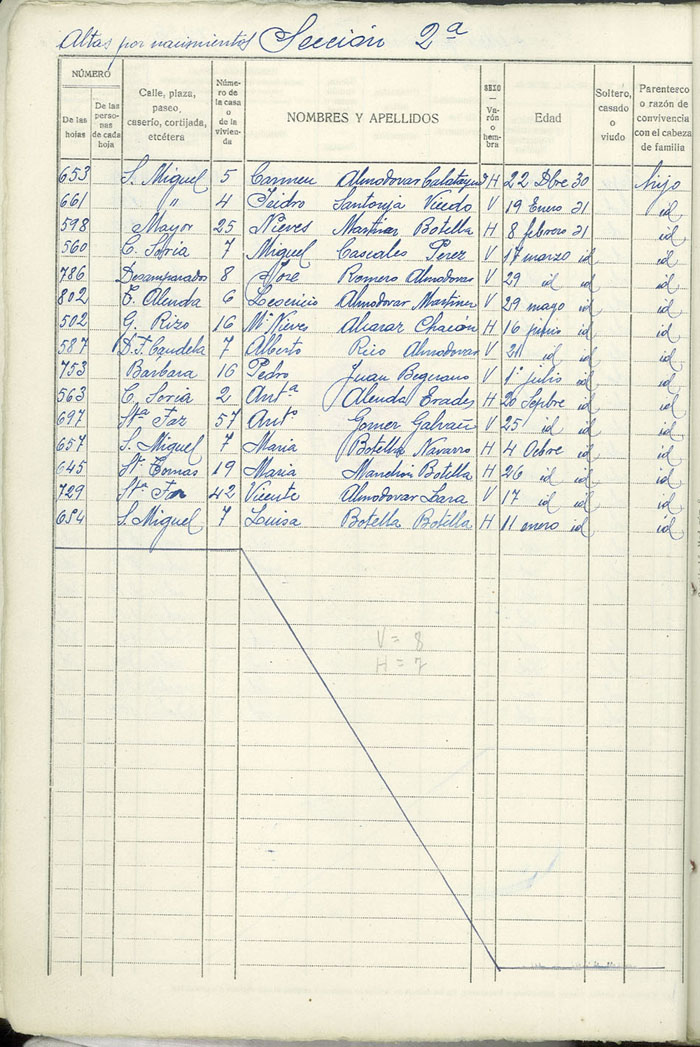 Altas por nacimientos Sección 2ª
NÚMERO
De las hojas
De las personas de cada hoja
Calle, plaza, paseo, caserío, cortijada, etcétera
Número de la casa o de la vivienda
NOMBRES Y APELLIDOS
SEXO — Varón o hembra
Edad
Soltero, casado o viudo
Parentesco o razón de convivencia con el cabeza de familia
653 S. Miguel 5 Carmen Almodovar Calatayud H 22 Dbre 30 hijo
661 " 4 Isidro Santonja V 19 Enero 31 id
598 Mayor 25 Nieves Martinez Botella H 8 febrero 31 id
560 C. Soria 7 Miguel Cascales Perez V 17 marzo id id
786 Desamparados 8 José Romero Almodovar V 29 id id id
802 T. Alenda 6 Almodovar Martinez V 29 mayo id id
502 G. Rizo 16 Mª Nieves Alcaraz Chacón H 16 junio id id
587 D. F. Candela 7 Alberto Rico Almodovar V 21 id id id
753 Barbara 16 Pedro Juan V 1º julio id id
563 C. Soria 2 Antª Alenda Erades H 20 Sepbre id id
697 Stª Faz 57 Antº Gomez Galvañ V 25 id id id
657 S. Miguel 7 Maria Botella Navarro H 4 Ocbre id id
645 Sto Tomas 19 Maria Manchon Botella H 26 id id id
729 Stª Faz 42 Vicente Almodovar Lara V 17 id id id
654 S. Miguel 7 Luisa Botella Botella H 11 enero id id
V = 8
H = 7